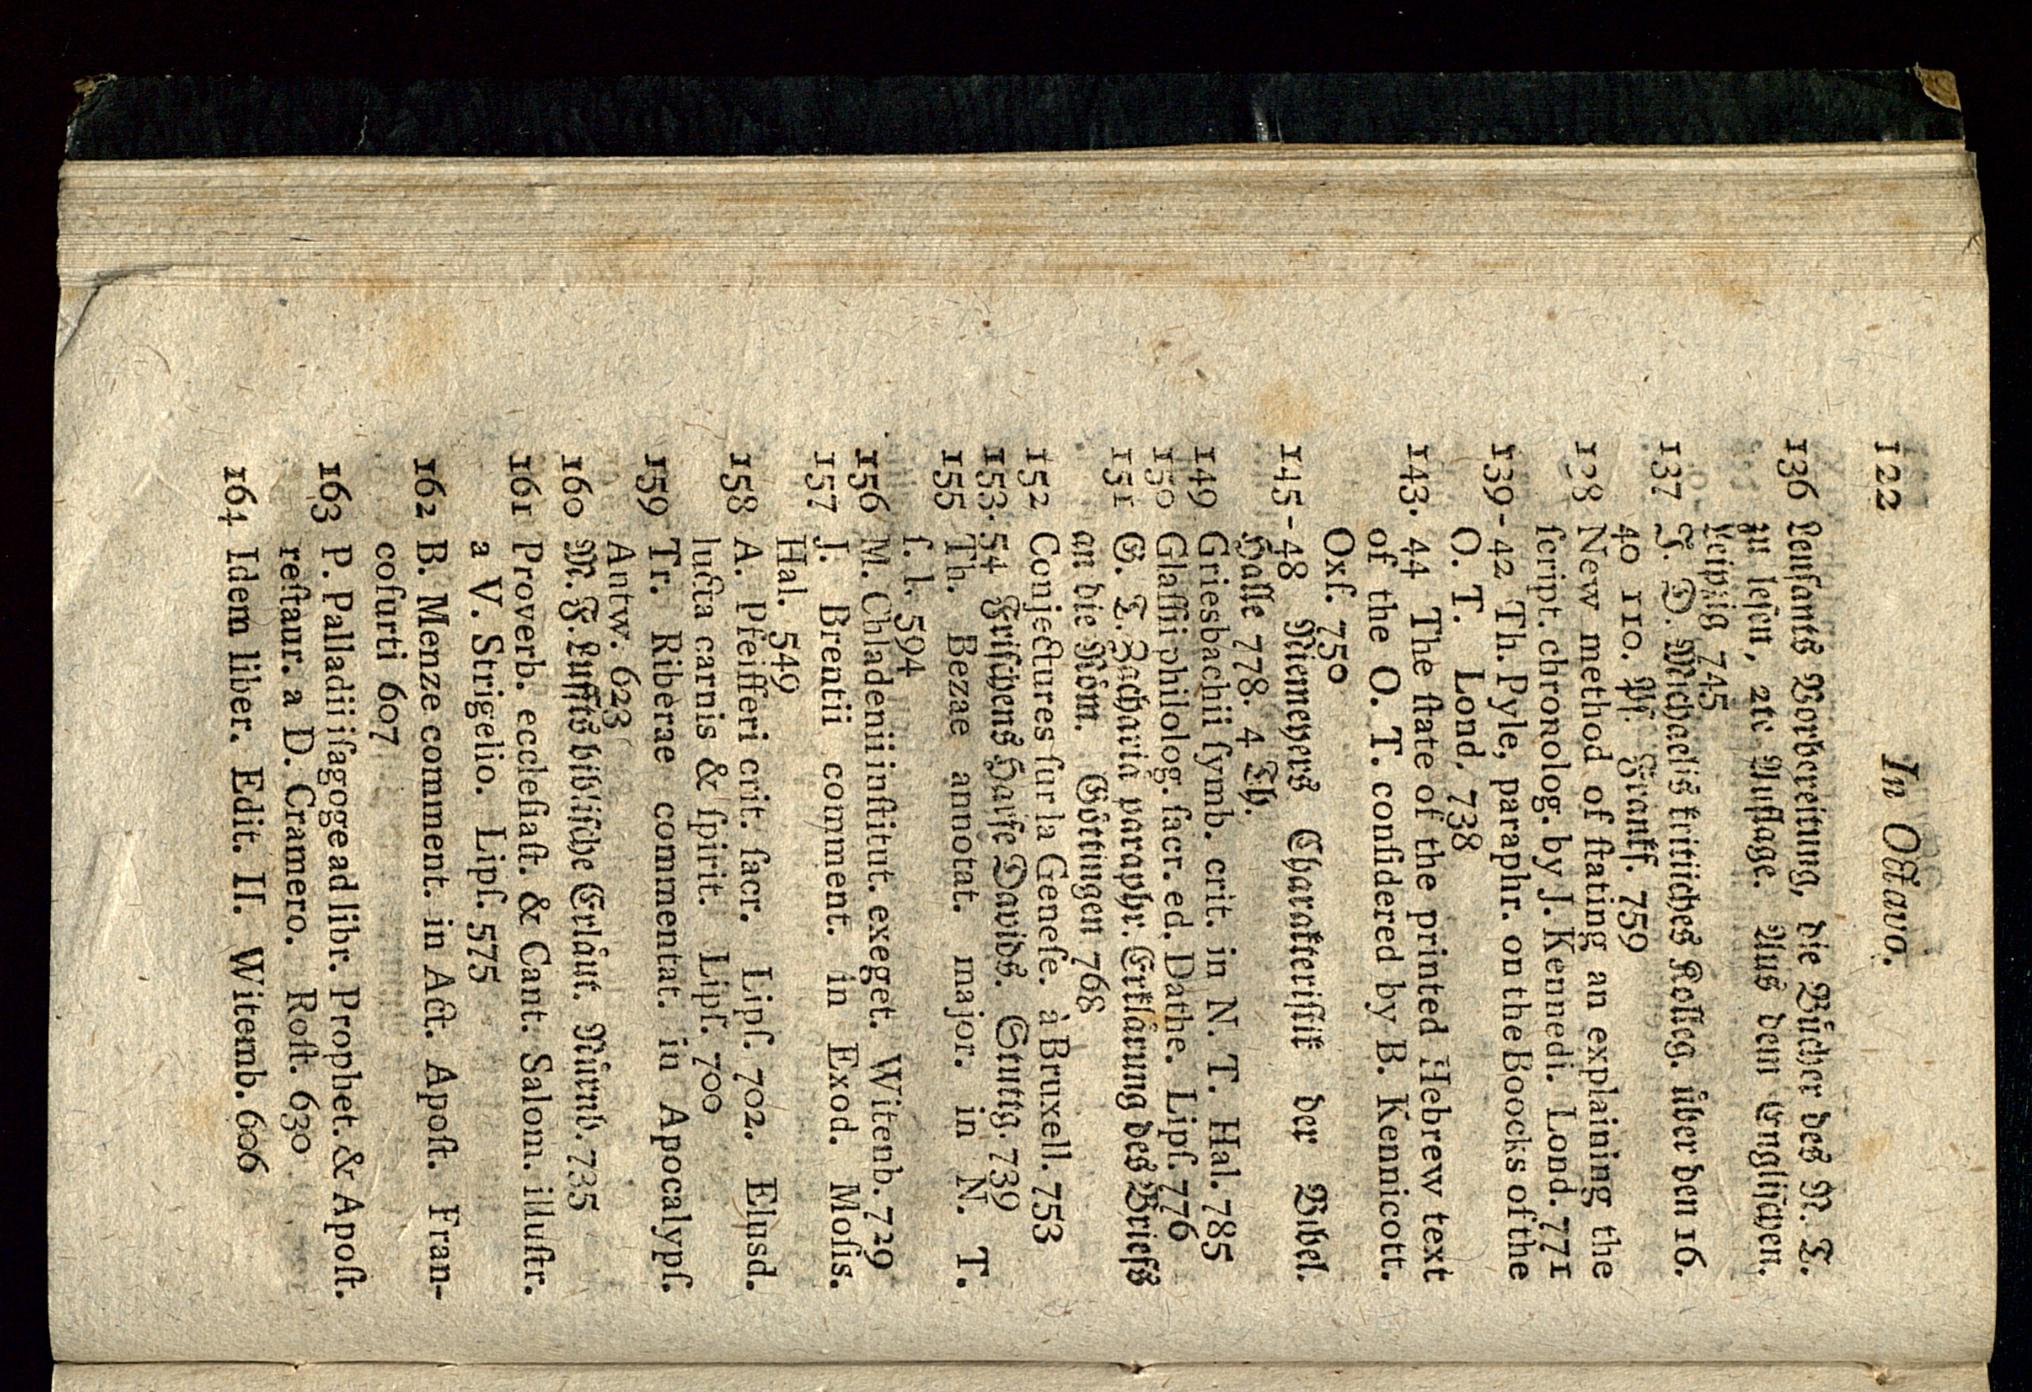 122
In Octavo.
136 Lenfants Vorbereitung, die Bücher des N. T.
zu lesen, 2te Auflage. Aus dem Englischen.
Leipzig 745
137 J. D. Michaelis kritisches Kolleg. über den 16.
40 110. Ps. Frankf. 759
138 New method of ſtating an explaining the
ſcript. chronolog. by J. Kennedi. Lond. 771
139-42 Th. Pyle, paraphr. on the Boocks of the
O. T. Lond. 738
143. 44 The ſtate of the printed Hebrew text
of the O. T. conſidered by B. Kennicott.
Oxf. 750
145-48 Niemeyers Charakteriſtik der Bibel.
Halle 778. 4 Th.
149 Griesbachii ſymb. crit. in N. T. Hal. 785
150 Glaſſii philolog. ſacr. ed. Dathe. Lipſ. 776
151 G. T. Zachariä paraphr. Erklärung des Briefs
an die Röm. Göttingen 768
152 Conjectures ſur la Geneſe. à Bruxell. 753
153. 54 Friſchens Harfe Davids. Stuttg. 739
155 Th. Bezae annotat. major. in N. T.
ſ. l. 594
156 M. Chladenii inſtitut. exeget. Witenb. 729
157 J. Brentii comment. in Exod. Moſis.
Hal. 549
158 A. Pfeifferi crit. ſacr. Lipſ. 702. Eiusd.
lucta carnis & ſpirit. Lipſ. 700
159 Tr. Riberae commentat. in Apocalypſ.
Antw. 623
160 M. F. Lufts bibliſche Erläut. Nürnb. 735
161 Proverb. eccleſiaſt. & Cant. Salom. illuſtr.
a V. Strigelio. Lipſ. 575
162 B. Menze comment. in Act. Apoſt. Fran-
cofurti 607
163 P. Palladii iſagoge ad libr. Prophet. & Apoſt.
reſtaur. a D. Cramero. Roſt. 630
164 Idem liber. Edit. II. Witemb. 606